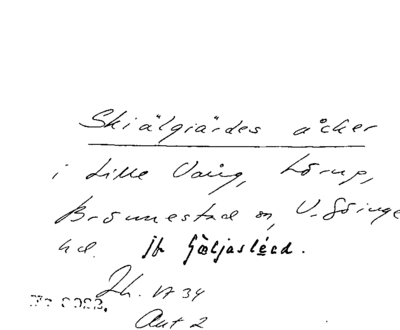 Skiälgiärdes åcker
i Lille Vång, Lörup,
Brönnestad sn, V. Göinge
hd. jfr Gäljasléed.
Jh. 1734
Akt 2